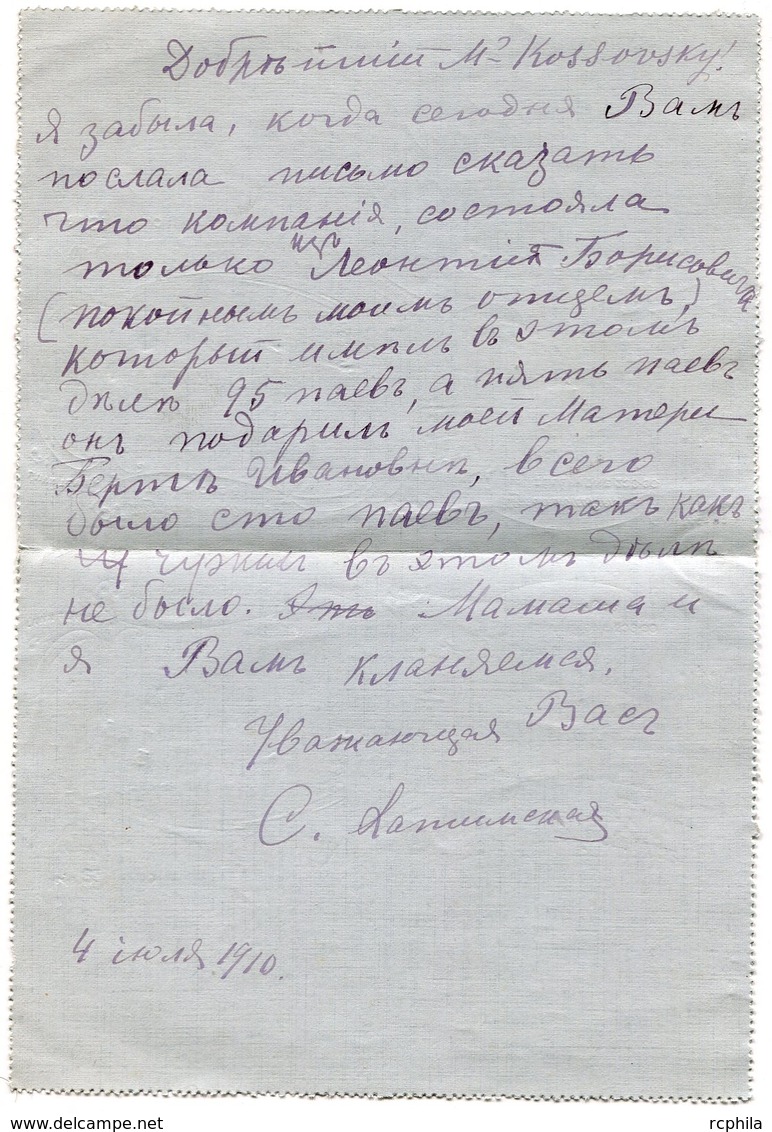 Добрѣйшій Mr Kossovsky!
Я забыла, когда сегодня Вамъ
послала письмо сказать
что компанія, состояла
только изъ Леонтія Борисовича
(покойнымъ моимъ отцемъ,)
который имѣлъ въ этомъ
дѣлѣ 95 паевъ, а пять паевъ
онъ подарилъ моей Матери
Бертѣ Ивановнѣ, всего
было сто паевъ, такъ какъ
чужих въ этомъ дѣлѣ
не было. Мамаша и
я Вамъ кланяемся.
Уважающая Васъ
С.
4 іюля 1910.
delcampe.net
rcphila